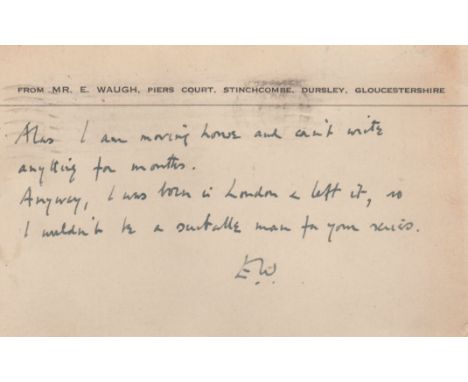 FROM MR. E. WAUGH, PIERS COURT, STINCHCOMBE, DURSLEY, GLOUCESTERSHIRE
Alas I am moving house and can't write
anything for months.
Anyway, I was born in London & left it, so
I wouldn't be a suitable man for your series.
E.W.